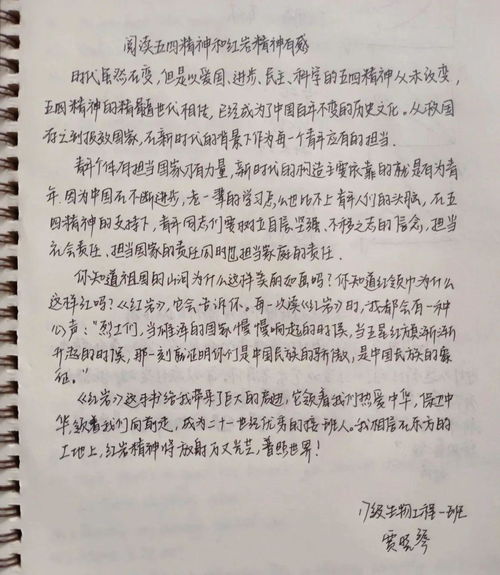 阅读五四精神和红岩精神有感
时代虽然在变,但是以爱国、进步、民主、科学的五四精神从未改变,
五四精神的精髓世代相传,已经成为了中国百年不变的历史文化。从救国
存亡到报效国家,在新时代的背景下作为每一个青年应有的担当。
青年个体有担当国家才有力量,新时代的构造主要依靠的就是有为青
年,因为中国在不断进步,老一辈的学习怎么也比不上青年人们的头脑,在五
四精神的支持下,青年同志们要树立自信、坚强、不移之志的信念,担当
社会责任、担当国家的责任同时也担当家庭的责任.
你知道祖国的山河为什么这样美丽如画吗?你知道红领巾为什么
这样红吗?《红岩》,它会告诉你。每一次读《红岩》时,我都会有一种
心声:"烈士们,当雄浑的国家慢慢响起的时候,当五星红旗渐渐
升起的时候,那一刻就证明你们是中国民族的骄傲,是中国民族的象
征。"
《红岩》这本书给我带来了巨大的启迪,它领着我们热爱中华,保卫中
华,领着我们向前走,成为二十一世纪优秀的接班人。我相信在东方的
土地上,红岩精神将放射万丈光芒,普照世界!
17级生物工程一班
贾晓琴